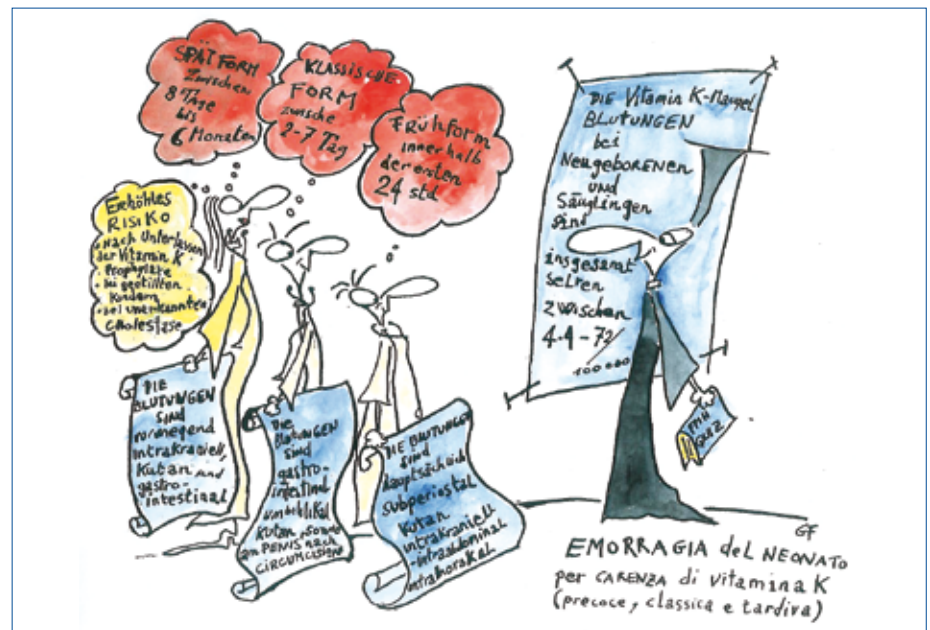 SPÄTFORM
Zwischen
8 Tage
bis
6 Monaten
KLASSISCHE
FORM
zwische
2-7 Tag
FRÜHFORM
innerhalb
der ersten
24 std
Erhöhtes
RISIKO
• Nach Unterlassen
der Vitamin K
Prophylaxe
• bei gestillten
Kindern
• bei unerkannter
Cholestase
DIE
BLUTUNGEN
SIND
vorwiegend
intrakraniell,
Kutan und
gastro-
intestinal
Die
Blutungen
sind
gastro-
intestinal
umbilikal
kutan, sowie
am PENIS nach
CIRCUMCISION
DIE BLUTUNGEN
SIND
hauptsächlich
Subperiostal
Kutan
intrakraniell
-intraabdominal
intrathorakal
DIE Vitamin K-Mangel
BLUTUNGEN
bei
Neugeborenen
und
Säuglingen
sind
insgesamt
selten
zwischen
4.4-72/
100000
GF
EMORRAGIA del NEONATO
per CARENZA di vitamina K
(precoce, classica e tardiva)